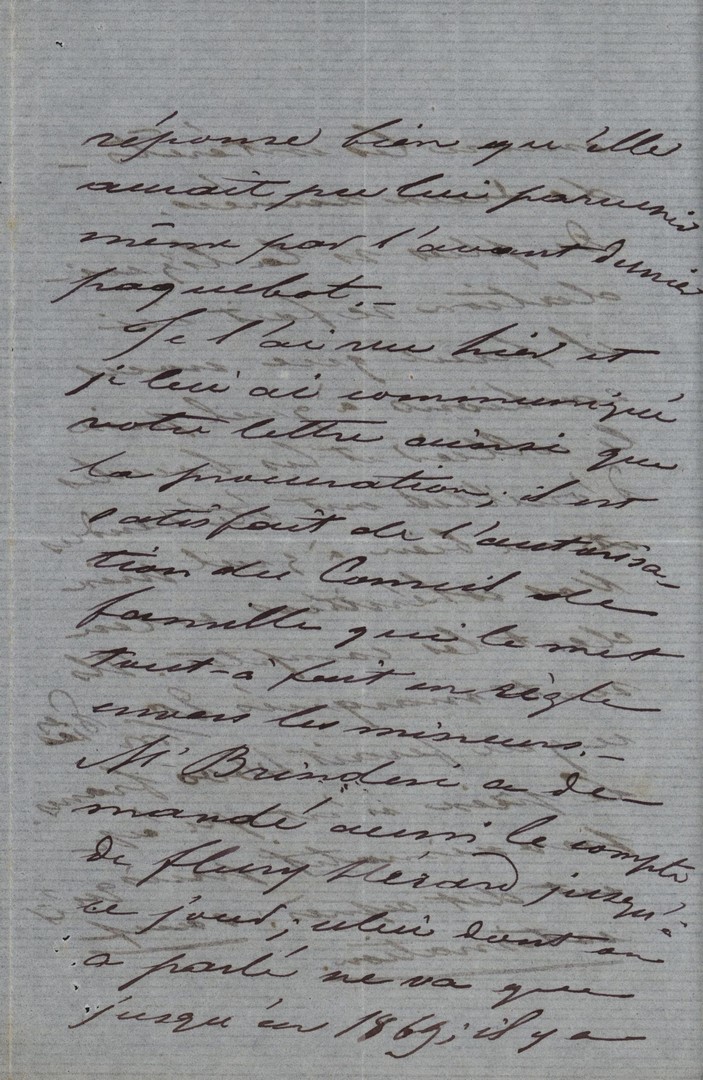 réponse bien qu'elle
aurait pu lui parvenir
même par l'avant dernier
paquebot._
Je l'ai vu hier et
je lui ai communiqué
votre lettre ainsi que
la procuration; il est
satisfait de l'autorisa-
tion du Conseil de
famille qui le met
tout-à fait en règle
envers les mineurs._
Mr Brinderi a de-
mandé aussi le compte
de fleury Hérard jusqu'à
ce jour; celui dont on
a parlé ne va que
jusqu'en 1869; il y a